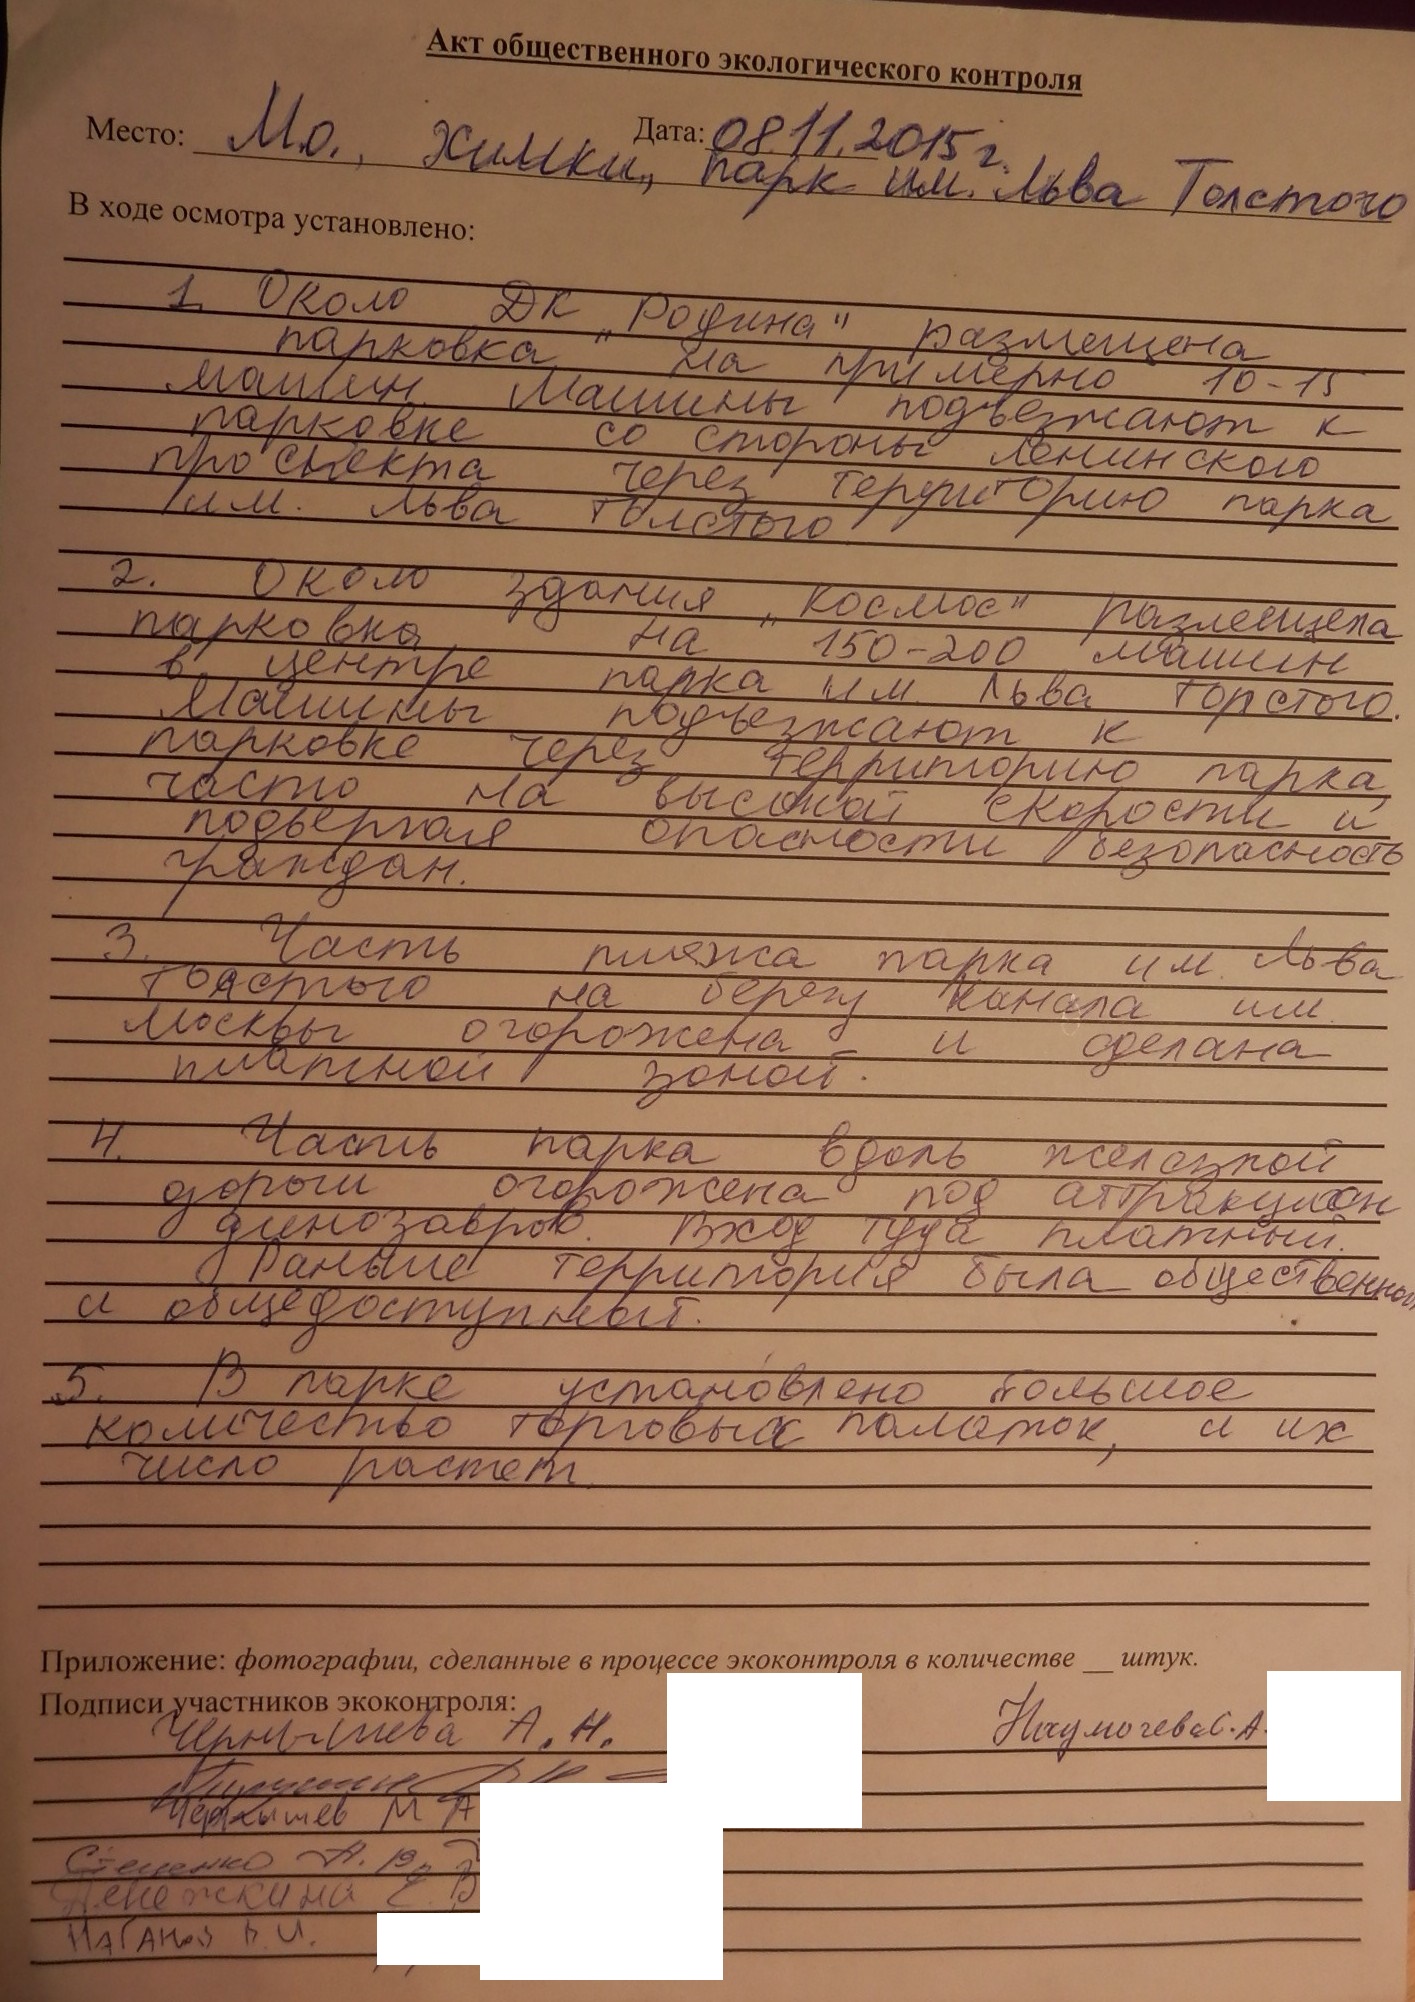 Акт общественного экологического контроля
Место: М.о., Химки, парк им. Льва Толстого Дата: 08.11.2015 г.
В ходе осмотра установлено:
1. Около ДК „Родина" размещена
парковка на примерно 10-15
машин. Машины подъезжают к
парковке со стороны Ленинского
проспекта через территорию парка
им. Льва Толстого
2. Около здания „Космос" размещена
парковка на 150-200 машин
в центре парка им. Льва Толстого.
Машины подъезжают к
парковке через территорию парка,
часто на высокой скорости и
подвергая опасности безопасность
граждан.
3. Часть пляжа парка им. Льва
Толстого на берегу канала им.
Москвы огорожена и сделана
платной зоной.
4. Часть парка вдоль железной
дороги огорожена под аттракцион
динозавров. Вход туда платный.
Раньше территория была общественной
и общедоступной.
5. В парке установлено большое
количество торговых палаток, и их
число растет.
Приложение: фотографии, сделанные в процессе экоконтроля в количестве __ штук.
Подписи участников экоконтроля:
Чернышева А.Н. Наумочева С.А.
Чернышев М А
Стеценко А. В.
Денежкина Е. В
Наганов В.И.